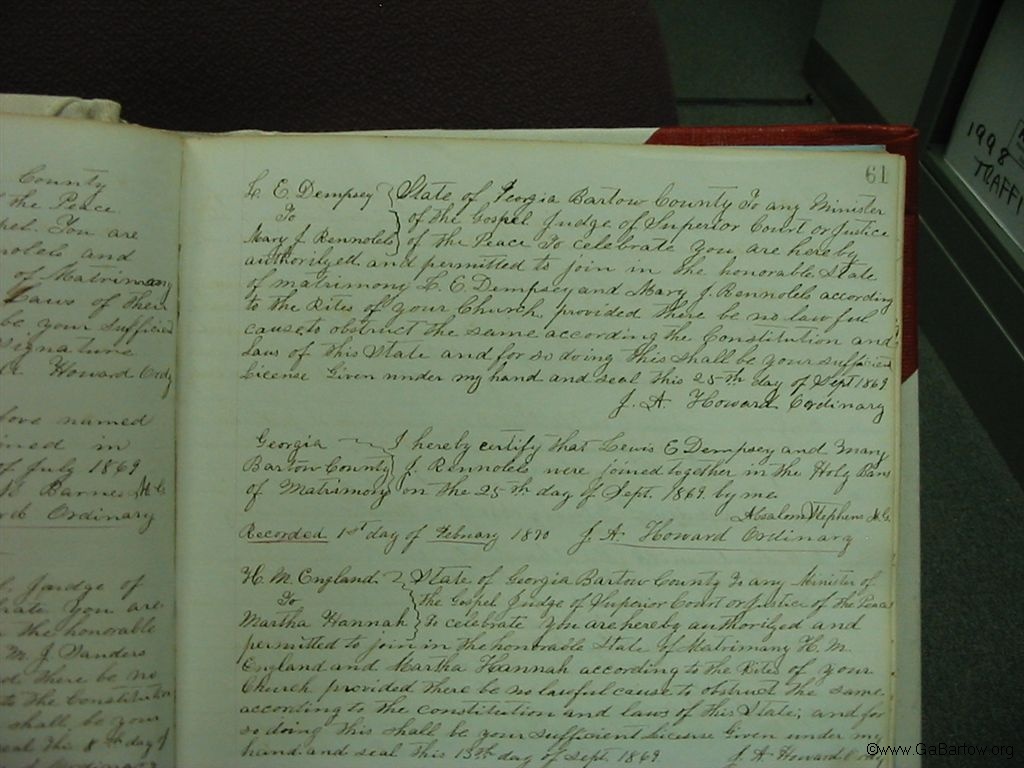 County
the Peace
You are
and
of Matrimony
Laws of their
be your sufficien
Signature
Howard Ordy
ove named
ined in
of July 1869
Barnes M. G.
Ordinary
Judge of
rate you are
the honorable
M. J. Sanders
there be no
to the Constitution
shall be your
seal this 8th day of
Ordinary
61
L. E. Dempsey State of Georgia Bartow County To any Minister
To of the Gospel Judge of Superior Court or Justice
Mary J. Rennolels of the Peace To celebrate You are hereby
authorized and permitted to join in the honorable State
of matrimony L. E. Dempsey and Mary J. Rennolels according
to the Rites of your Church, provided there be no lawful
cause to obstruct the same according the Constitution and
Laws of this State and for so doing this shall be your sufficient
License Given under my hand and seal this 25th day of Sept 1869
J. A. Howard Ordinary
Georgia I hereby certify that Lewis E Dempsey and Mary
Bartow County J. Rennolels were joined together in the Holy Bans
of Matrimony on the 25th day of Sept. 1869. by me.
Absalom Stephens M. G.
Recorded 1st day of February 1870 J. A. Howard Ordinary
H. M. England State of Georgia Bartow County To any Minister of
To the Gospel Judge of Superior Court or Justice of the Peace
Martha Hannah To celebrate You are hereby authorized and
permitted to join in the honorable State of Matrimony H. M.
England and Martha Hannah according to the Rites of your
Church provided there be no lawful cause to obstruct the same
according to the constitution and laws of this State; and for
so doing this shall be your sufficient License Given under my
hand and seal this 13th day of Sept. 1869. J. A. Howard
1998
TRAFFI
©www.GaBartow.org